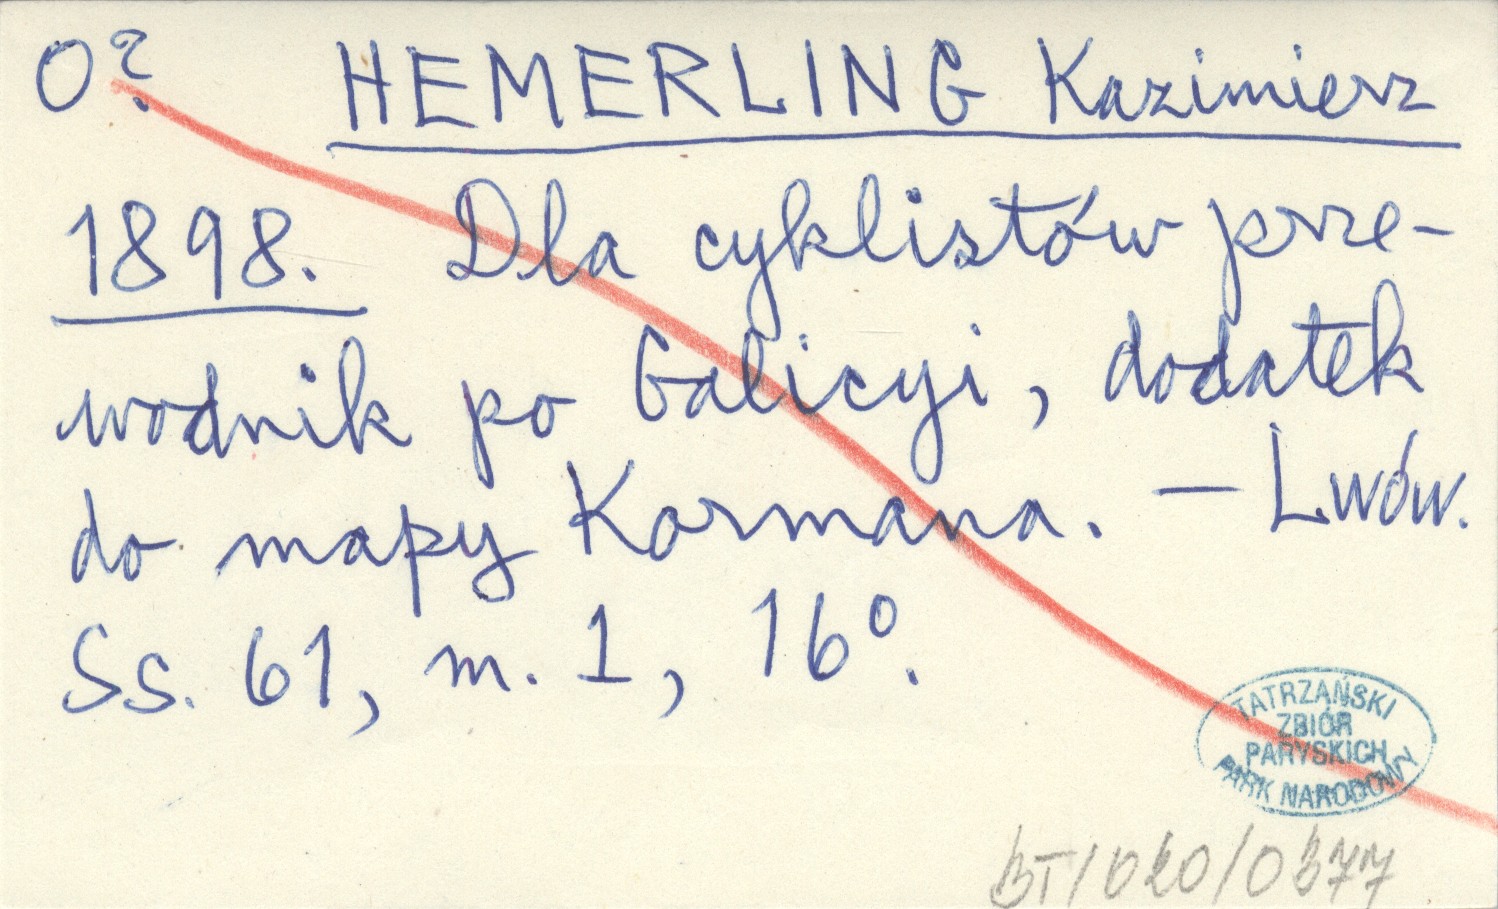 O? HEMERLING Kazimierz
1898. Dla cyklistów prze-
wodnik po Galicyi, dodatek
do mapy Kormana. — Lwów.
Ss. 61, m. 1, 16°.
TATRZAŃSKI
ZBIÓR
PARYSKICH
PARK NARODOWY
BT/020/0377